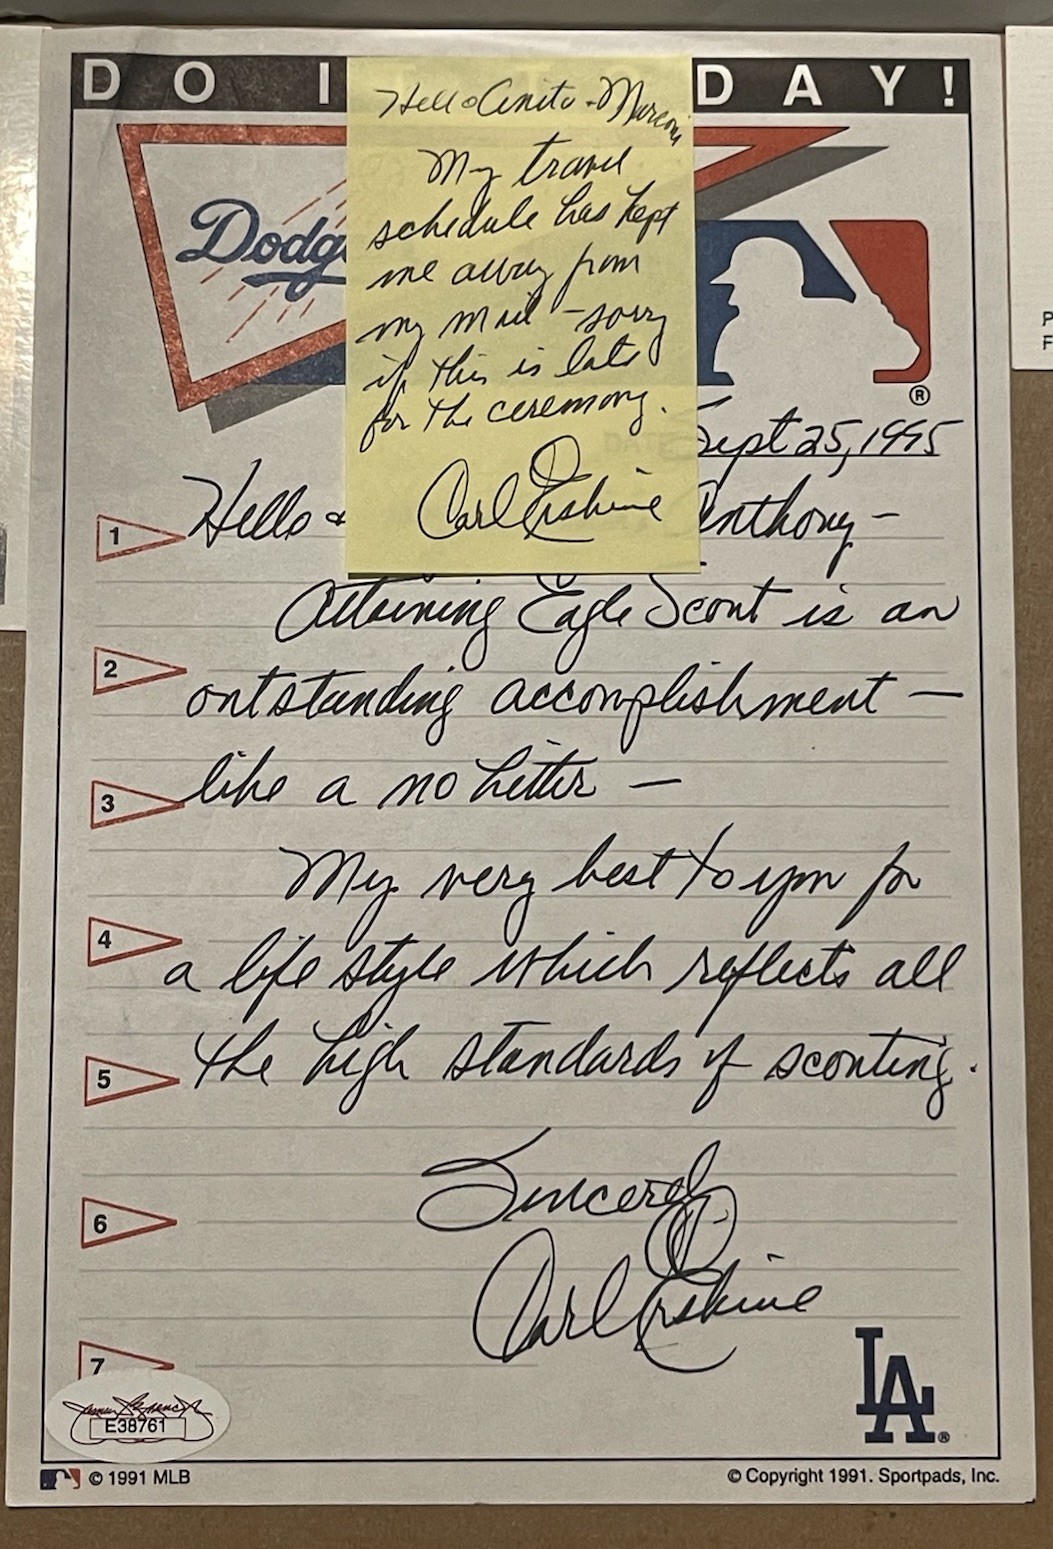 DO I DAY!
Hello Anita - Marconi
My travel
schedule has kept
me away from
my mail - sorry
if this is late
for the ceremony.
Carl Erskine
Dodg
®
DATE Sept 25, 1995
1 Hello & Anthony -
Attaining Eagle Scout is an
2
outstanding accomplishment -
3 like a no hitter -
My very best to you for
4
a life style which reflects all
5 the high standards of scouting.
Sincerely
6
Carl Erskine
7
E38761
LA®
© 1991 MLB
© Copyright 1991. Sportpads, Inc.
P
F